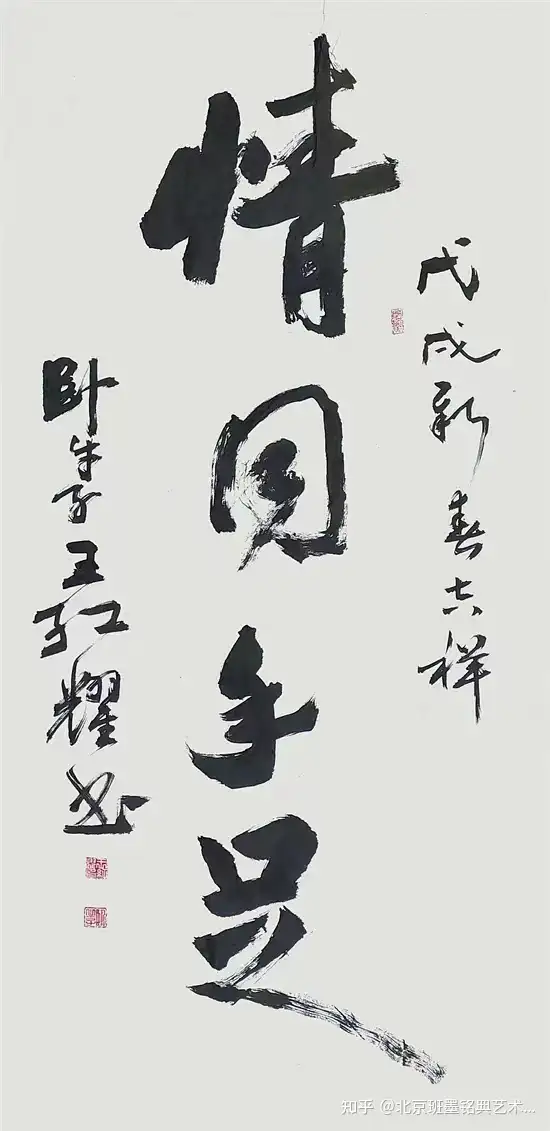 戊戌新春吉祥
情同手足
卧牛子王红耀书
知乎 @北京班墨铭典艺术...